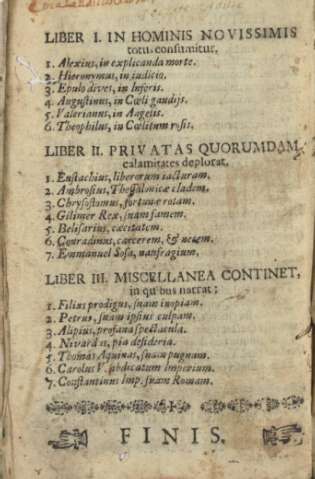 LIBER I. IN HOMINIS NOVISSIMIS
totus consumitur.
1. Alexius, in explicanda morte.
2. Hieronymus, in iudicio.
3. Epulo dives, in Inferis.
4. Augustinus, in Cœli gaudijs.
5. Valerianus, in Angelis.
6. Theophilus, in Cœlitum rosis.
LIBER II. PRIVATAS QUORUMDAM
calamitates deplorat.
1. Eustachius, liberorum iacturam.
2. Ambrosius, Thessalonicæ cladem.
3. Chrysostomus, fortunæ rotam.
4. Gilimer Rex, suam famem.
5. Belisarius, cæcitatem.
6. Conradinus, carcerem, & necem.
7. Emmanuel Sosa, naufragium.
LIBER III. MISCELLANEA CONTINET,
in quibus narrat:
1. Filius prodigus, suam inopiam.
2. Petrus, suam ipsius culpam.
3. Alipius, profana spectacula.
4. Nivardus, pia desideria.
5. Thomas Aquinas, suam pugnam.
6. Carolus V. abdicatum Imperium.
7. Constantinus Imp. suam Romam.
FINIS.